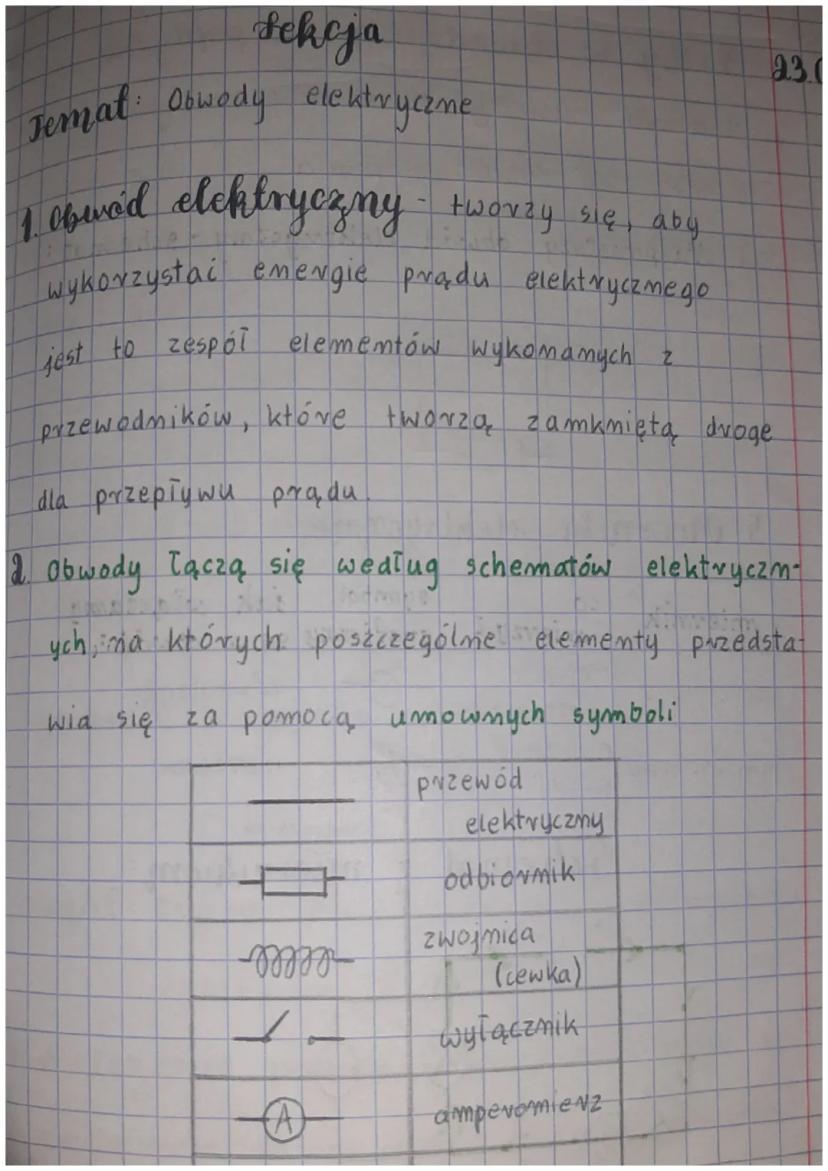 Lekcja
23.
Temat: Obwody elektryczne
1. Obwód elektryczny - tworzy się, aby
wykorzystać energie prądu elektrycznego
jest to zespół elementów wykonanych z
przewodników, które tworzą zamkniętą droge
dla przepływu prądu.
2. Obwody łączą się według schematów elektryczn-
ych, na których poszczególne elementy przedsta-
wia się za pomocą umownych symboli
przewód
elektryczny
odbiornik
zwojnica
(cewka)
wyłącznik
A
amperomierz